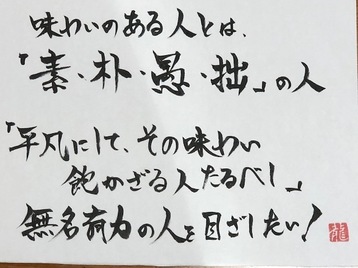 味わいのある人とは、
「素・朴・愚・拙」の人
「平凡にして、その味わい
飽かざる人たるべし」
無名有力の人を目ざしたい!
龍